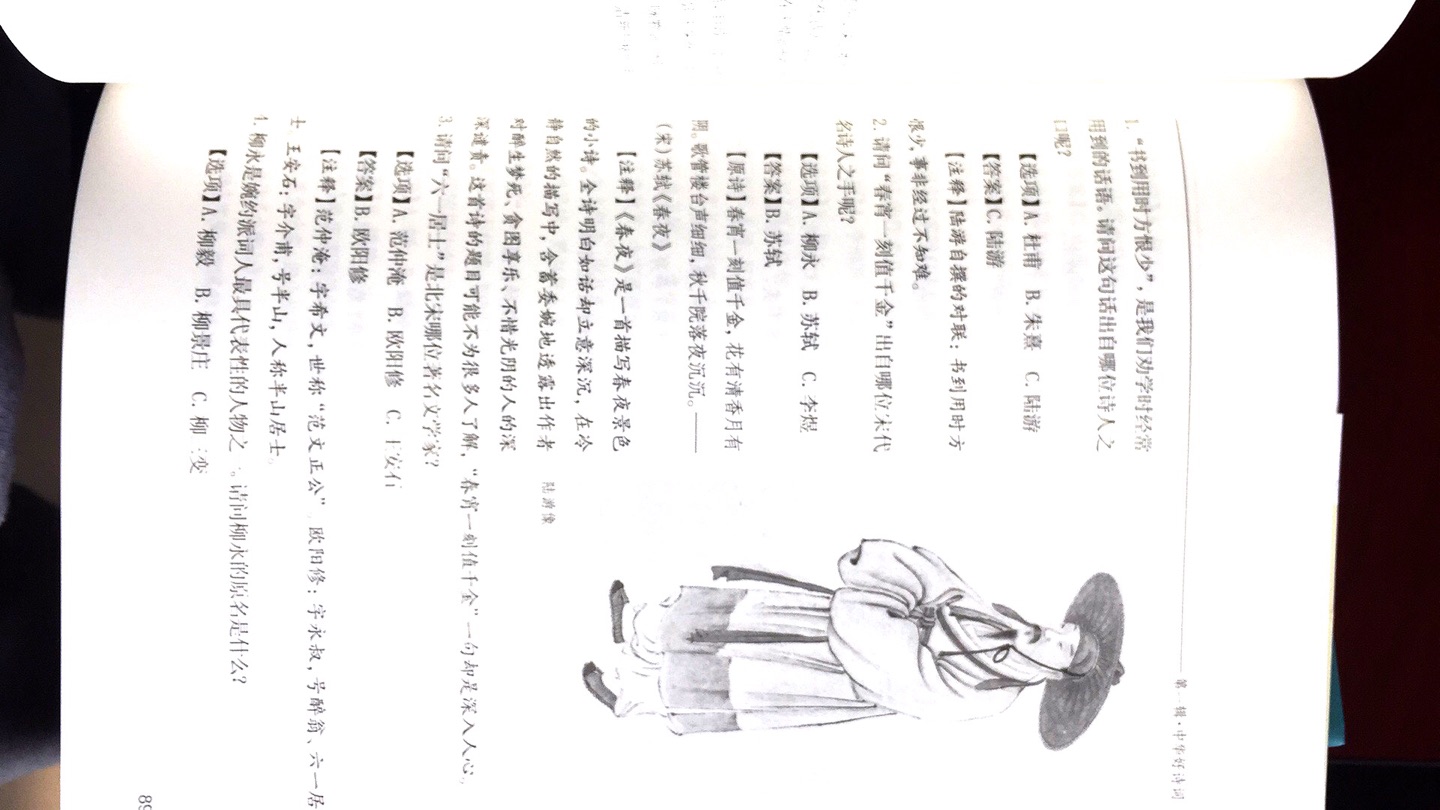 第一辑·中华好诗词
1. “书到用时方恨少”，是我们劝学时经常
用到的话语。请问这句话出自哪位诗人之
口呢？
【选项】A. 杜甫 B. 朱熹 C. 陆游
【答案】C. 陆游
【注释】陆游自撰的对联：书到用时方
恨少，事非经过不知难。
2. 请问“春宵一刻值千金”出自哪位宋代
名诗人之手呢？
【选项】A. 柳永 B. 苏轼 C. 李煜
【答案】B. 苏轼
【原诗】春宵一刻值千金，花有清香月有
阴。歌管楼台声细细，秋千院落夜沉沉。——
（宋）苏轼《春夜》
【注释】《春夜》是一首描写春夜景色
的小诗。全诗明白如话却立意深沉，在冷
静自然的描写中，含蓄委婉地透露出作者
对醉生梦死、贪图享乐、不惜光阴的人的深
深谴责。这首诗的题目可能不为很多人了解，“春宵一刻值千金”一句却是深入人心。
陆游像
3. 请问“六一居士”是北宋哪位著名文学家？
【选项】A. 范仲淹 B. 欧阳修 C. 王安石
【答案】B. 欧阳修
【注释】范仲淹：字希文，世称“范文正公” 欧阳修：字永叔，号醉翁、六一居
士 王安石：字介甫，号半山，人称半山居士。
4. 柳永是婉约派词人最具代表性的人物之一。请问柳永的原名是什么？
【选项】A. 柳毅 B. 柳景庄 C. 柳三变
89